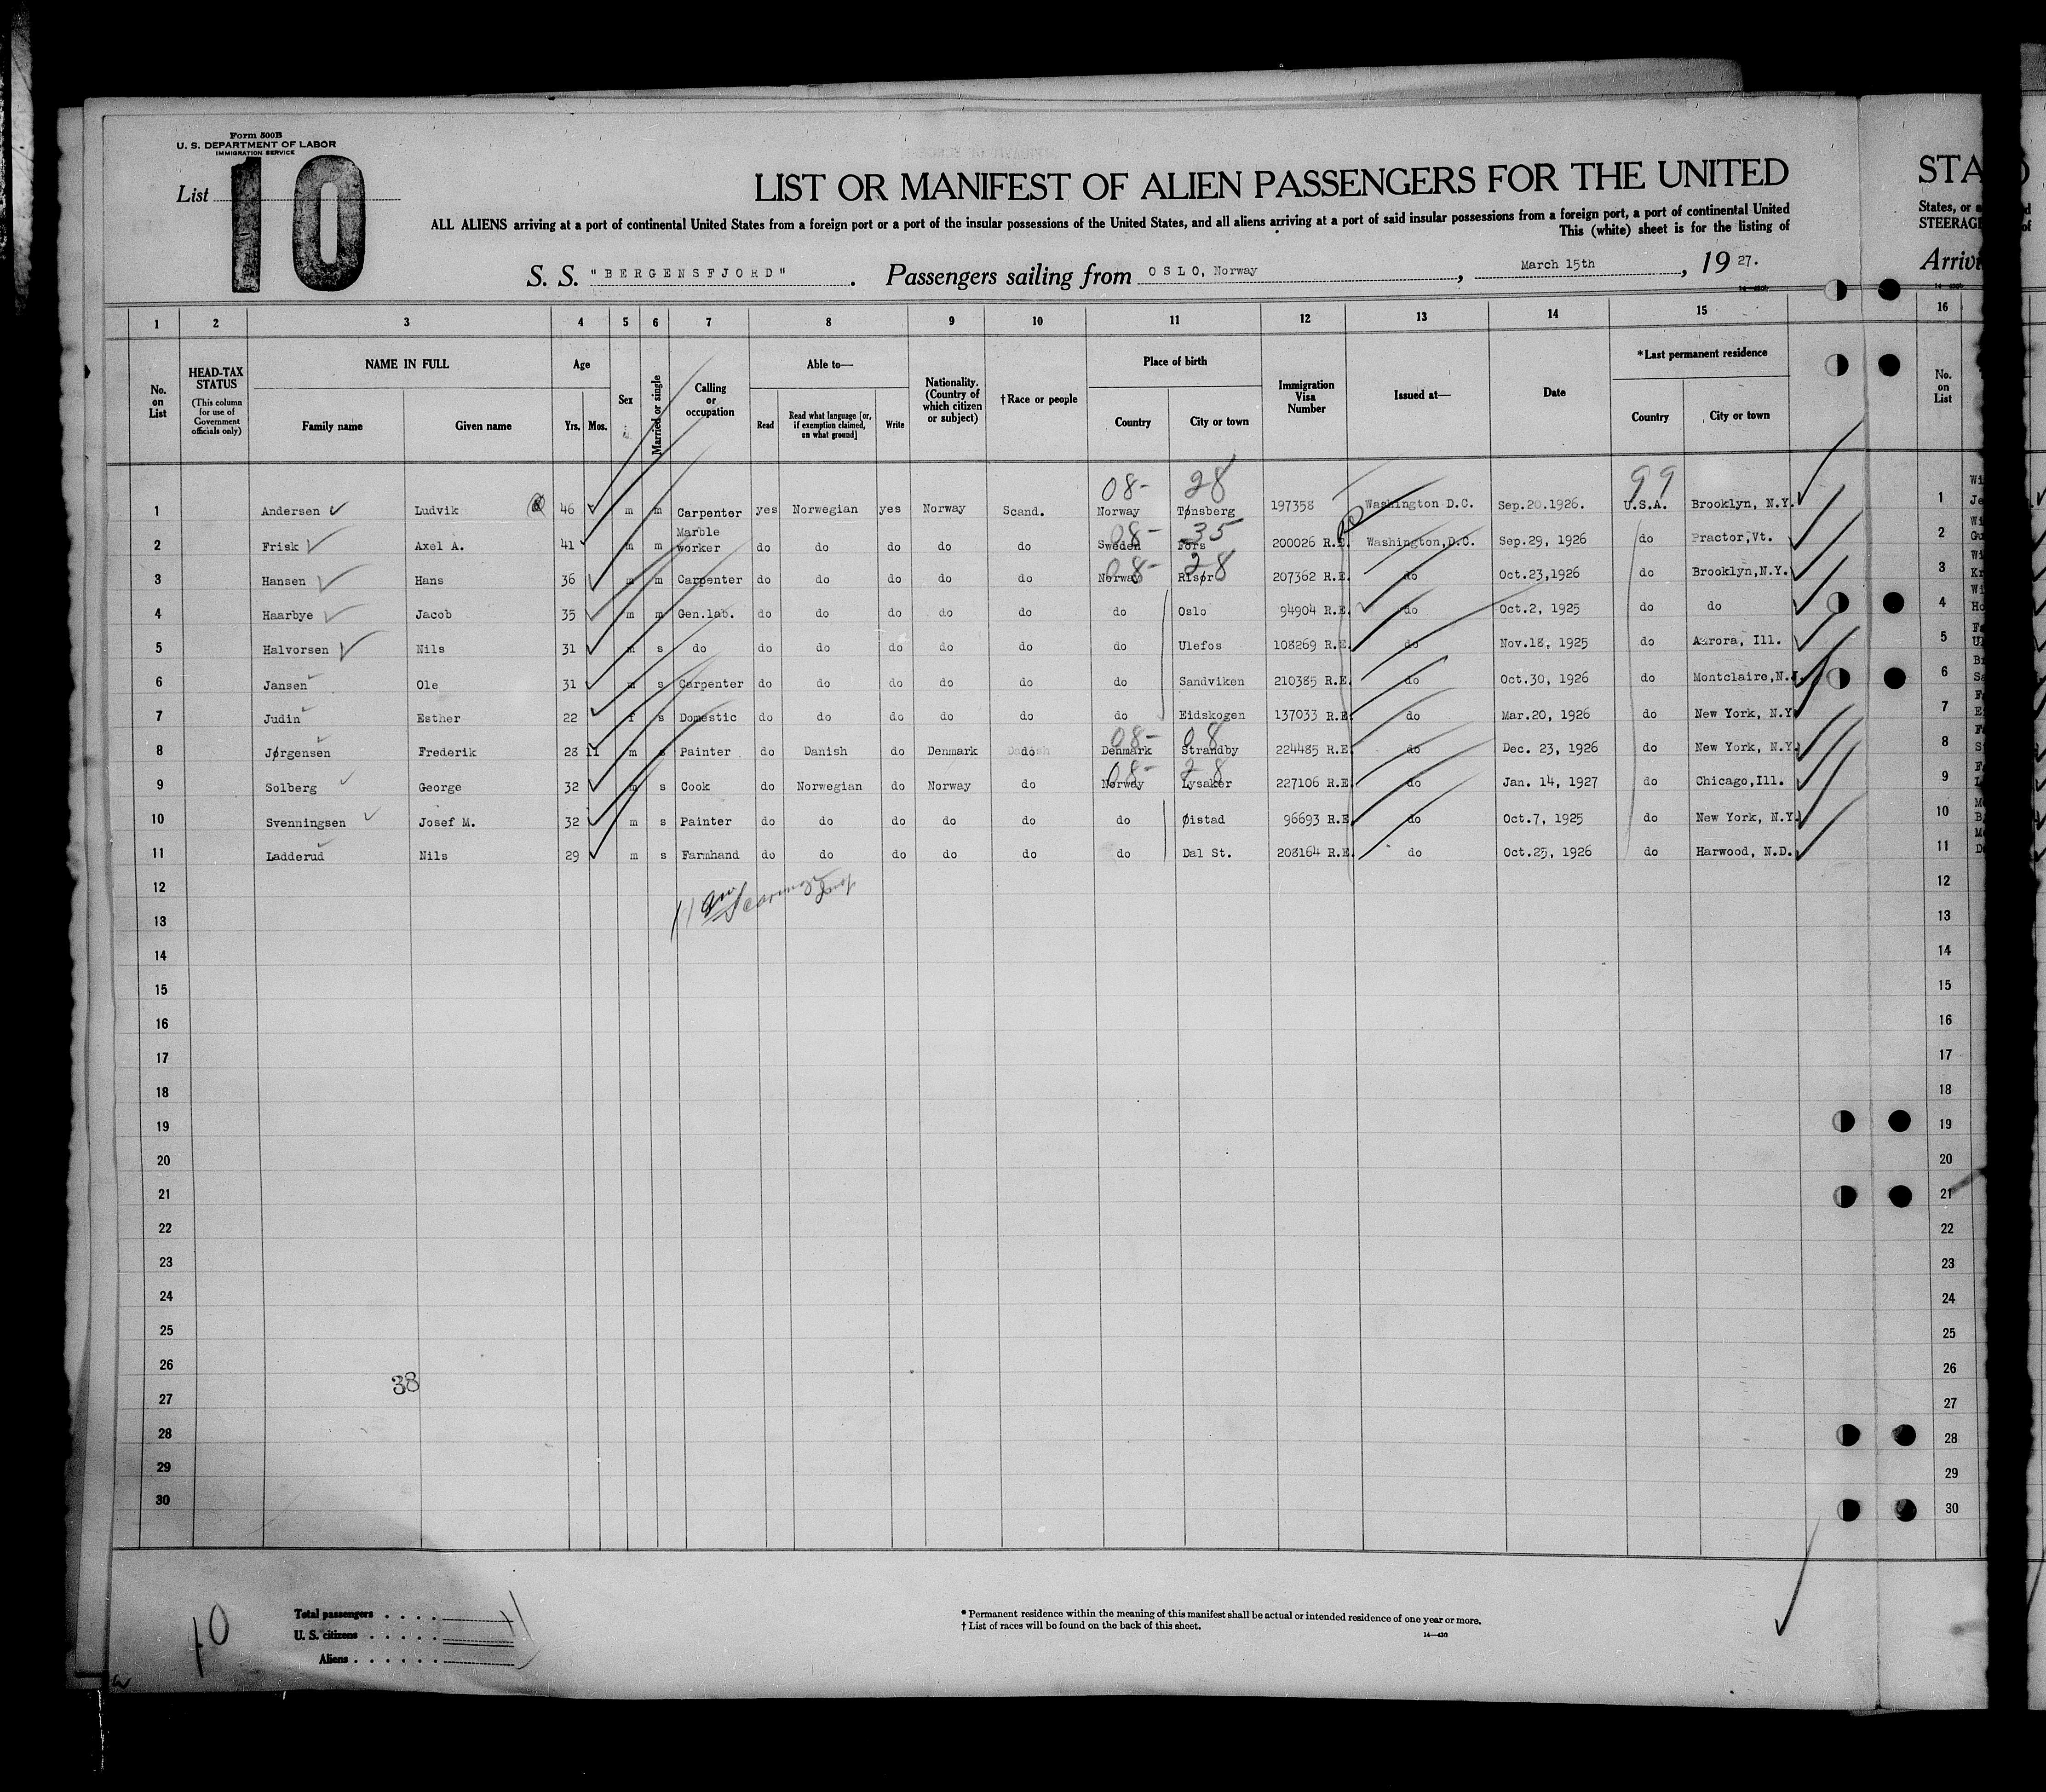 Form 500B
U. S. DEPARTMENT OF LABOR
IMMIGRATION SERVICE
List 10
LIST OR MANIFEST OF ALIEN PASSENGERS FOR THE UNITED
STA
ALL ALIENS arriving at a port of continental United States from a foreign port or a port of the insular possessions of the United States, and all aliens arriving at a port of said insular possessions from a foreign port, a port of continental United
States, or a
This (white) sheet is for the listing of
STEERAG
S. S. "BERGENSFJORD". Passengers sailing from OSLO, Norway, March 15th, 1927.
Arriv
1 2 3 4 5 6 7 8 9 10 11 12 13 14 15 16
No. on List
HEAD-TAX STATUS
(This column for use of Government officials only)
NAME IN FULL
Family name Given name
Age
Yrs. Mos.
Sex
Married or single
Calling or occupation
Able to—
Read
Read what language [or, if exemption claimed, on what ground]
Write
Nationality. (Country of which citizen or subject)
†Race or people
Place of birth
Country City or town
Immigration Visa Number
Issued at—
Date
*Last permanent residence
Country City or town
No. on List
08- 28 99
1 Andersen Ludvik 46 m m Carpenter yes Norwegian yes Norway Scand. Norway Tønsberg 197358 Washington D.C. Sep.20.1926. U.S.A. Brooklyn, N.Y. 1
08- 35
2 Frisk Axel A. 41 m m Marble worker do do do do do Sweden Fors 200026 R.E. Washington,D.C. Sep.29, 1926 do Practor,Vt. 2
08- 28
3 Hansen Hans 36 m m Carpenter do do do do do Norway Risør 207362 R.E. do Oct.23,1926 do Brooklyn,N.Y. 3
4 Haarbye Jacob 35 m m Gen.lab. do do do do do do Oslo 94904 R.E. do Oct.2, 1925 do do 4
5 Halvorsen Nils 31 m s do do do do do do do Ulefos 108269 R.E. do Nov.18, 1925 do Aurora, Ill. 5
6 Jansen Ole 31 m s Carpenter do do do do do do Sandviken 210385 R.E. do Oct.30, 1926 do Montclaire,N.J. 6
7 Judin Esther 22 f s Domestic do do do do do do Eidskogen 137033 R.E. do Mar.20, 1926 do New York, N.Y. 7
08- 08
8 Jørgensen Frederik 28 11 m s Painter do Danish do Denmark do Denmark Strandby 224485 R.E. do Dec. 23, 1926 do New York, N.Y. 8
08- 28
9 Solberg George 32 m s Cook do Norwegian do Norway do Norway Lysaker 227106 R.E. do Jan. 14, 1927 do Chicago,Ill. 9
10 Svenningsen Josef M. 32 m s Painter do do do do do do Øistad 96693 R.E. do Oct.7, 1925 do New York, N.Y. 10
11 Ladderud Nils 29 m s Farmhand do do do do do do Dal St. 208164 R.E. do Oct.25, 1926 do Harwood, N.D. 11
12 12
11
13 13
14 14
15 15
16 16
17 17
18 18
19 19
20 20
21 21
22 22
23 23
24 24
25 25
26 26
38
27 27
28 28
29 29
30 30
10
Total passengers . . . . 11
U. S. citizens . . . . .
Aliens . . . . . .
* Permanent residence within the meaning of this manifest shall be actual or intended residence of one year or more.
† List of races will be found on the back of this sheet.
14—430